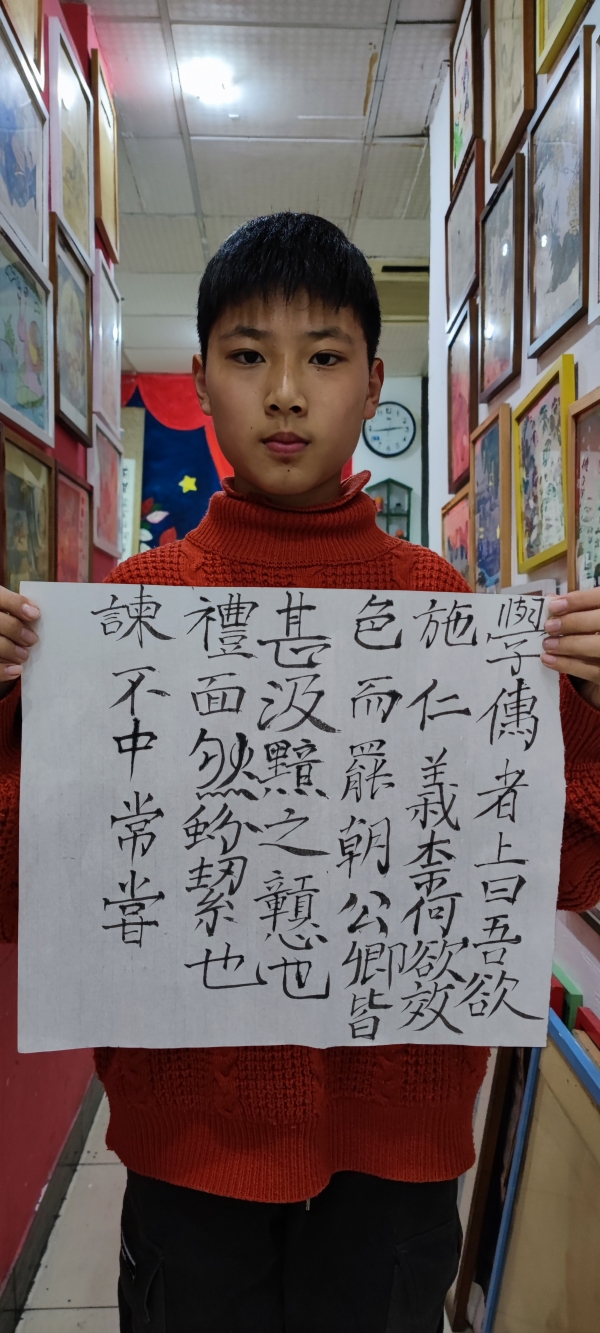 學儒者上曰吾欲
施仁義柰何欲效
色而罷朝公卿皆
甚汲黯之戇也
禮面然蚡絜也
諫不中常嘗